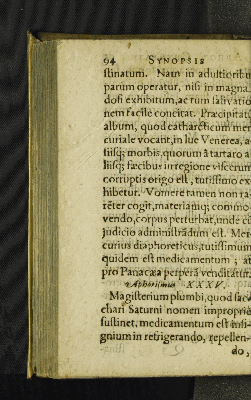 94 SYNOPSIS
stinatum. Nam in adustiorib
parum operatur, nisi in magna
dosi exhibitum, ac tum salivatio
nem facile concitat. Præcipitatũ
album, quod catharcticum mer
curiale vocant, in lue Venerea, a
liisq; morbis, quorum à tartaro a
liisq; fæcibus in regione viscerum
corruptis origo est, tutissimo ex
hibetur. Vomere tamen non ra
rēter cogit, materiamq; commo
vendo, corpus perturbat, unde cũ
judicio administrãdum est. Mer
curius diaphoreticus, tutissimum
quidem est medicamentum; at
pro Panacæa perperã venditatur.
Aphorismus XXXV.
Magisterium plumbi, quod sac
chari Saturni nomen impropriè
sustinet, medicamentum est insi-
gnium in refrigerando, repellen-
do,